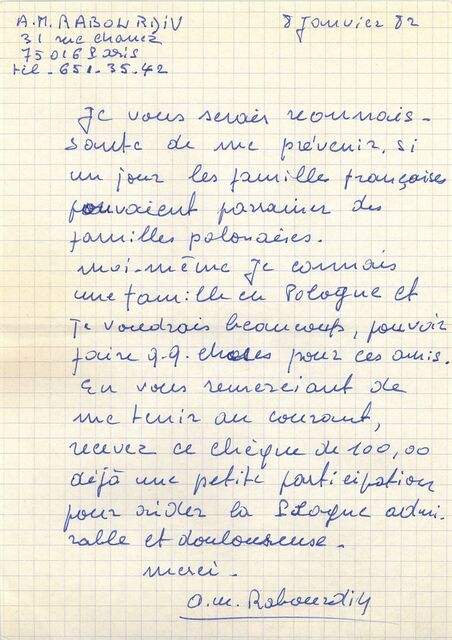 A.M. RABOURDIN
8 Janvier 82
31 rue Chanez
75016 Paris
tél - 651.35.42
Je vous serais reconnais-
sante de me prévenir, si
un jour les familles françaises
pouvaient parrainer des
familles polonaises.
Moi-même je connais
une famille en Pologne et
je voudrais beaucoup, pouvoir
faire q.q. choses pour ces amis.
En vous remerciant de
me tenir au courant,
recevez ce chèque de 100,00
déjà une petite participation
pour aider la Pologne admi-
rable et douloureuse.
merci.
A.M. Rabourdin